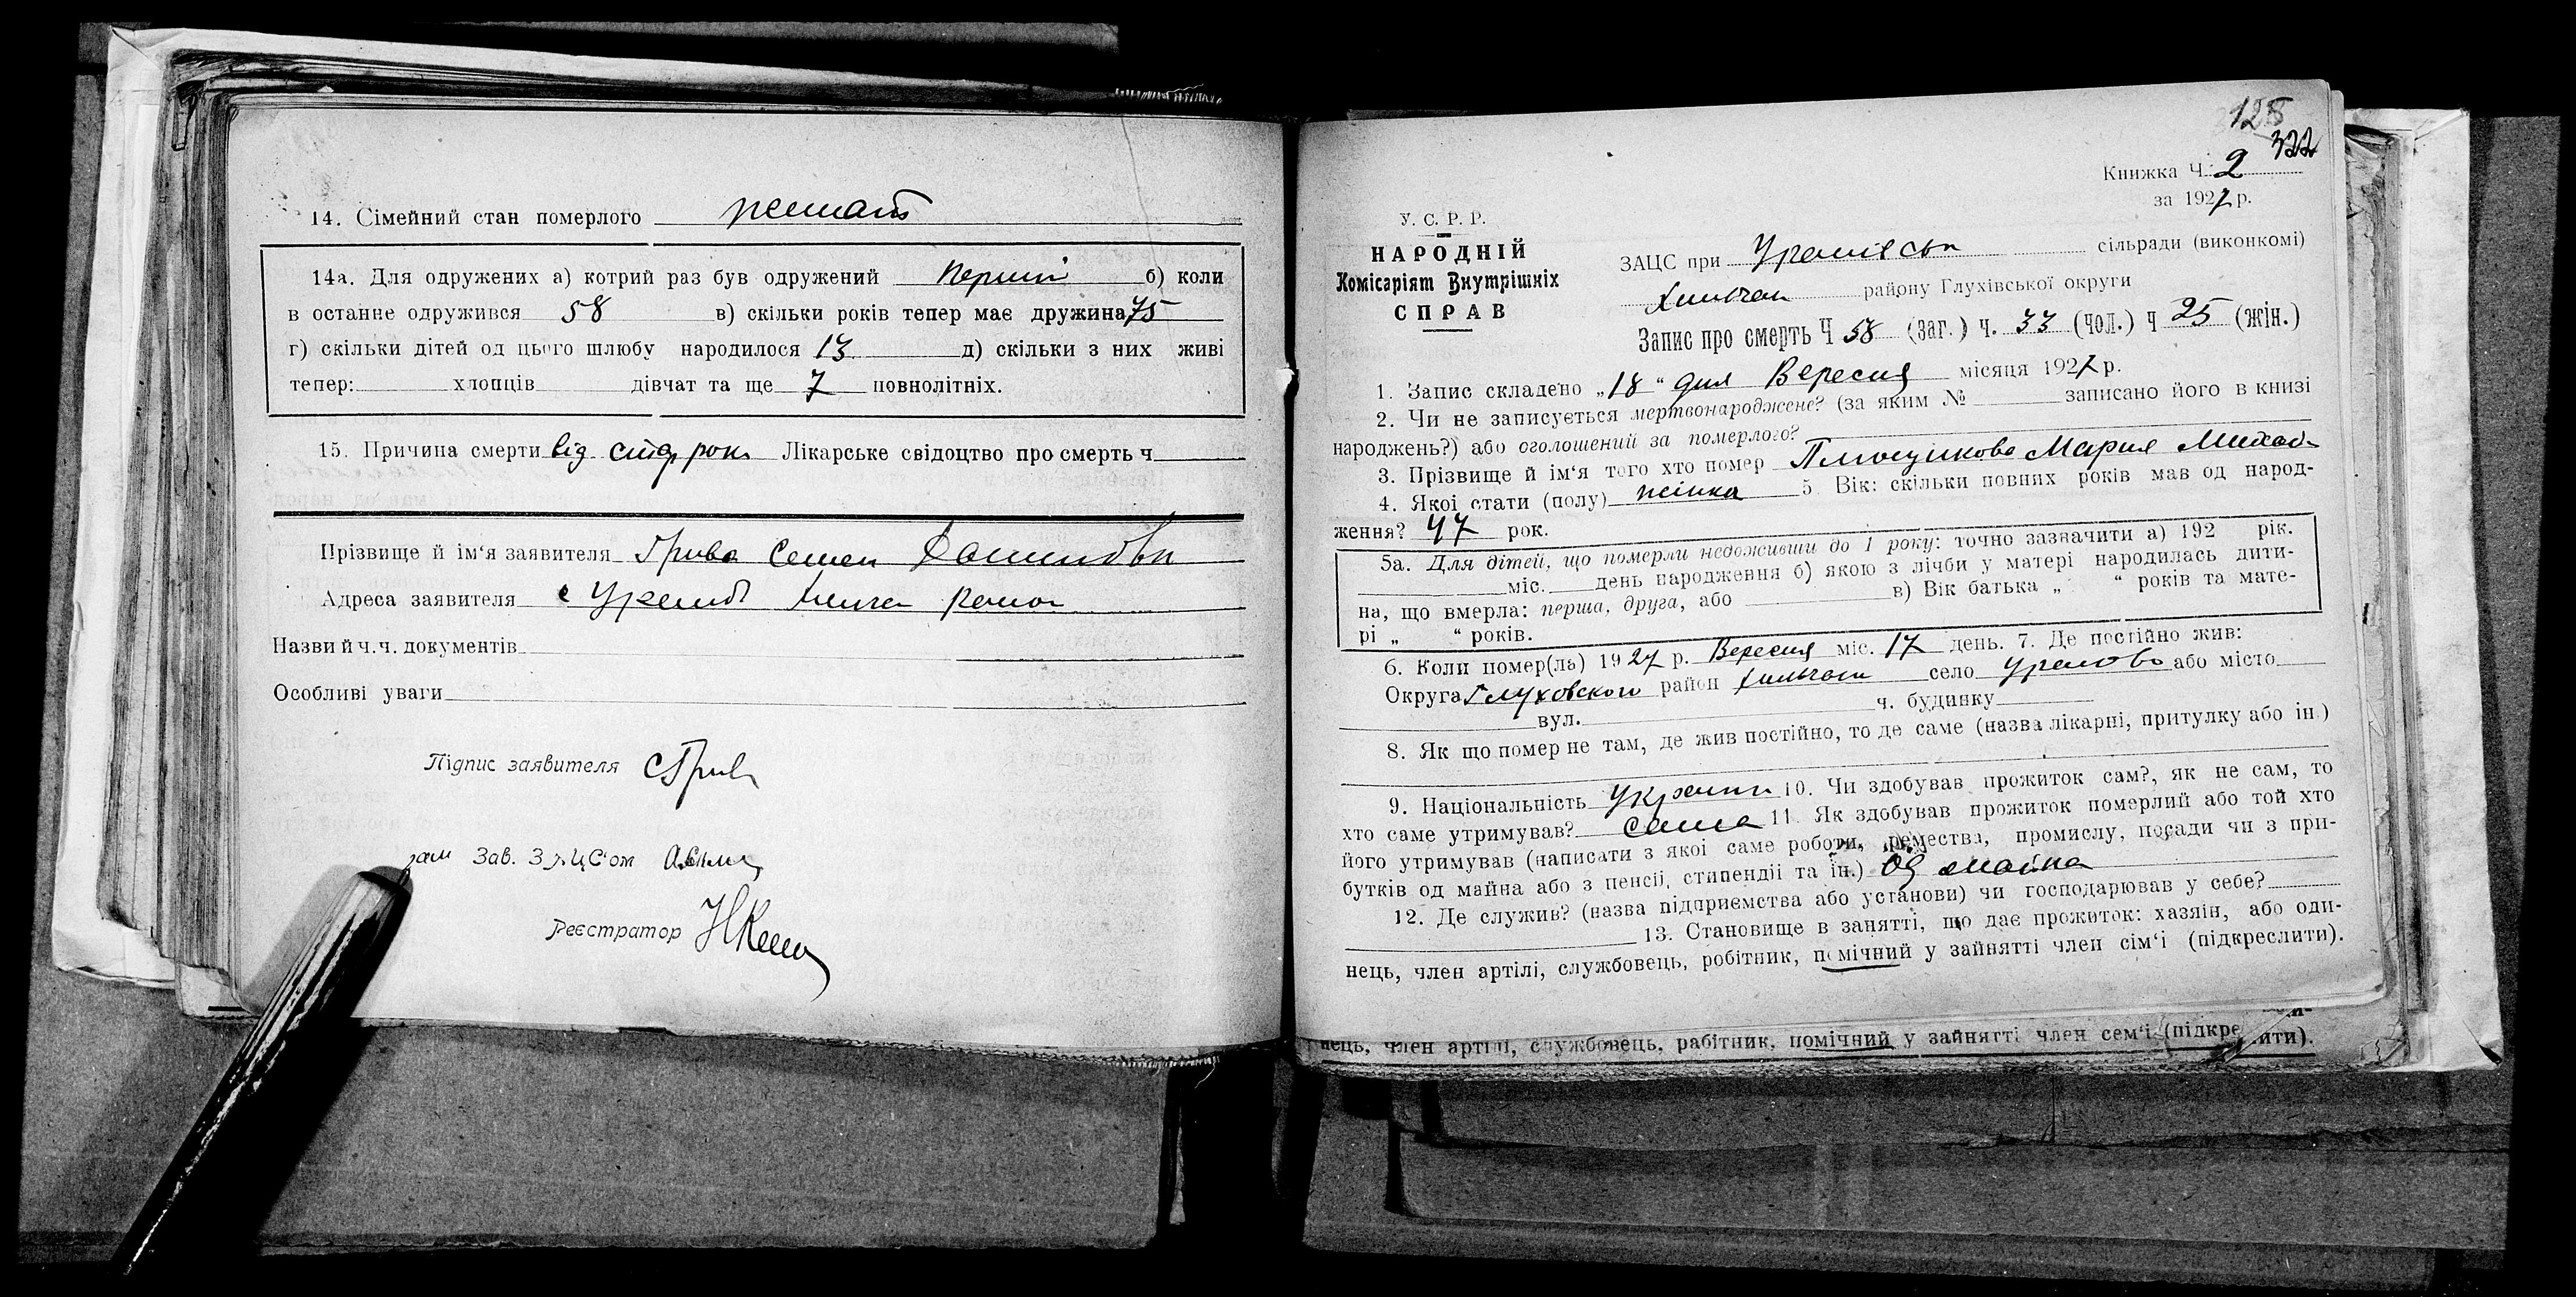 14. Сімейний стан померлого женат
14а. Для одружених а) котрий раз був одружений перший б) коли
в останнє одружився 58 в) скільки років тепер має дружина 75
г) скільки дітей од цього шлюбу народилося 13 д) скільки з них живі
тепер: хлопців дівчат та ще 7 повнолітніх.
15. Причина смерти від Лікарське свідоцтво про смерть ч
Прізвище й ім'я заявителя Грива Семен
Адреса заявителя с
Назви й ч.ч. документів
Особливі уваги
Підпис заявителя С Грив
Зав. ЗАЦС'ом
Реєстратор
128
322
Книжка Ч. 2
за 1927 р.
У. С. Р. Р.
НАРОДНІЙ
Комісаріят Внутрішніх
СПРАВ
ЗАЦС при сільради (виконкомі)
району Глухівської округи
Запис про смерть Ч 58 (заг.) ч. 33 (чол.) ч 25 (жін.)
1. Запис складено „18“ дня Вересня місяця 1927 р.
2. Чи не записується мертвонароджене? (за яким № записано його в книзі
народжень?) або оголошений за померлого?
3. Прізвище й ім'я того хто помер Мария Михай
4. Якої стати (полу) жінка 5. Вік: скільки повних років мав од народ-
ження? 47 рок.
5а. Для дітей, що померли недоживши до 1 року: точно зазначити а) 192 рік.
міс. день народження б) якою з лічби у матері народилась дити-
на, що вмерла: перша, друга, або в) Вік батька „ “ років та мате-
рі „ “ років.
6. Коли помер(ла) 1927 р. Вересня міс. 17 день. 7. Де постійно жив:
Округа Глуховского район село або місто
вул. ч. будинку
8. Як що помер не там, де жив постійно, то де саме (назва лікарні, притулку або ін.)
9. Національність 10. Чи здобував прожиток сам?, як не сам, то
хто саме утримував? сама 11. Як здобував прожиток померлий або той хто
його утримував (написати з якої саме роботи, ремества, промислу, посади чи з при-
бутків од майна або з пенсії, стипендії та ін.) Од майна
12. Де служив? (назва підприємства або установи) чи господарював у себе?
13. Становище в занятті, що дає прожиток: хазяїн, або оди-
нець, член артілі, службовець, робітник, помічний у зайнятті член сім'ї (підкреслити).
нець, член артілі, службовець, рабітник, помічний у зайнятті член сем'ї (підкре ити).